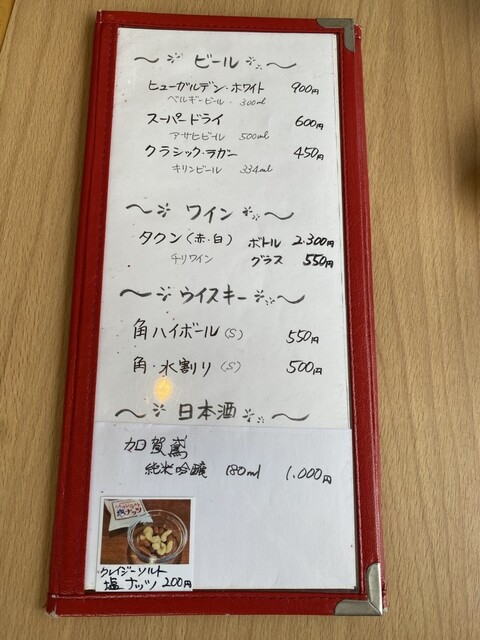 ビール
ヒューガルデン・ホワイト 900円
ベルギービール 300ml
スーパードライ 600円
アサヒビール 500ml
クラシック・ラガー 450円
キリンビール 334ml
ワイン
タクン(赤・白) ボトル 2,300円
チリワイン グラス 550円
ウイスキー
角ハイボール(S) 550円
角・水割り(S) 500円
日本酒
加賀鳶
純米吟醸 180ml 1,000円
クレイジーソルト
塩ナッツ 200円